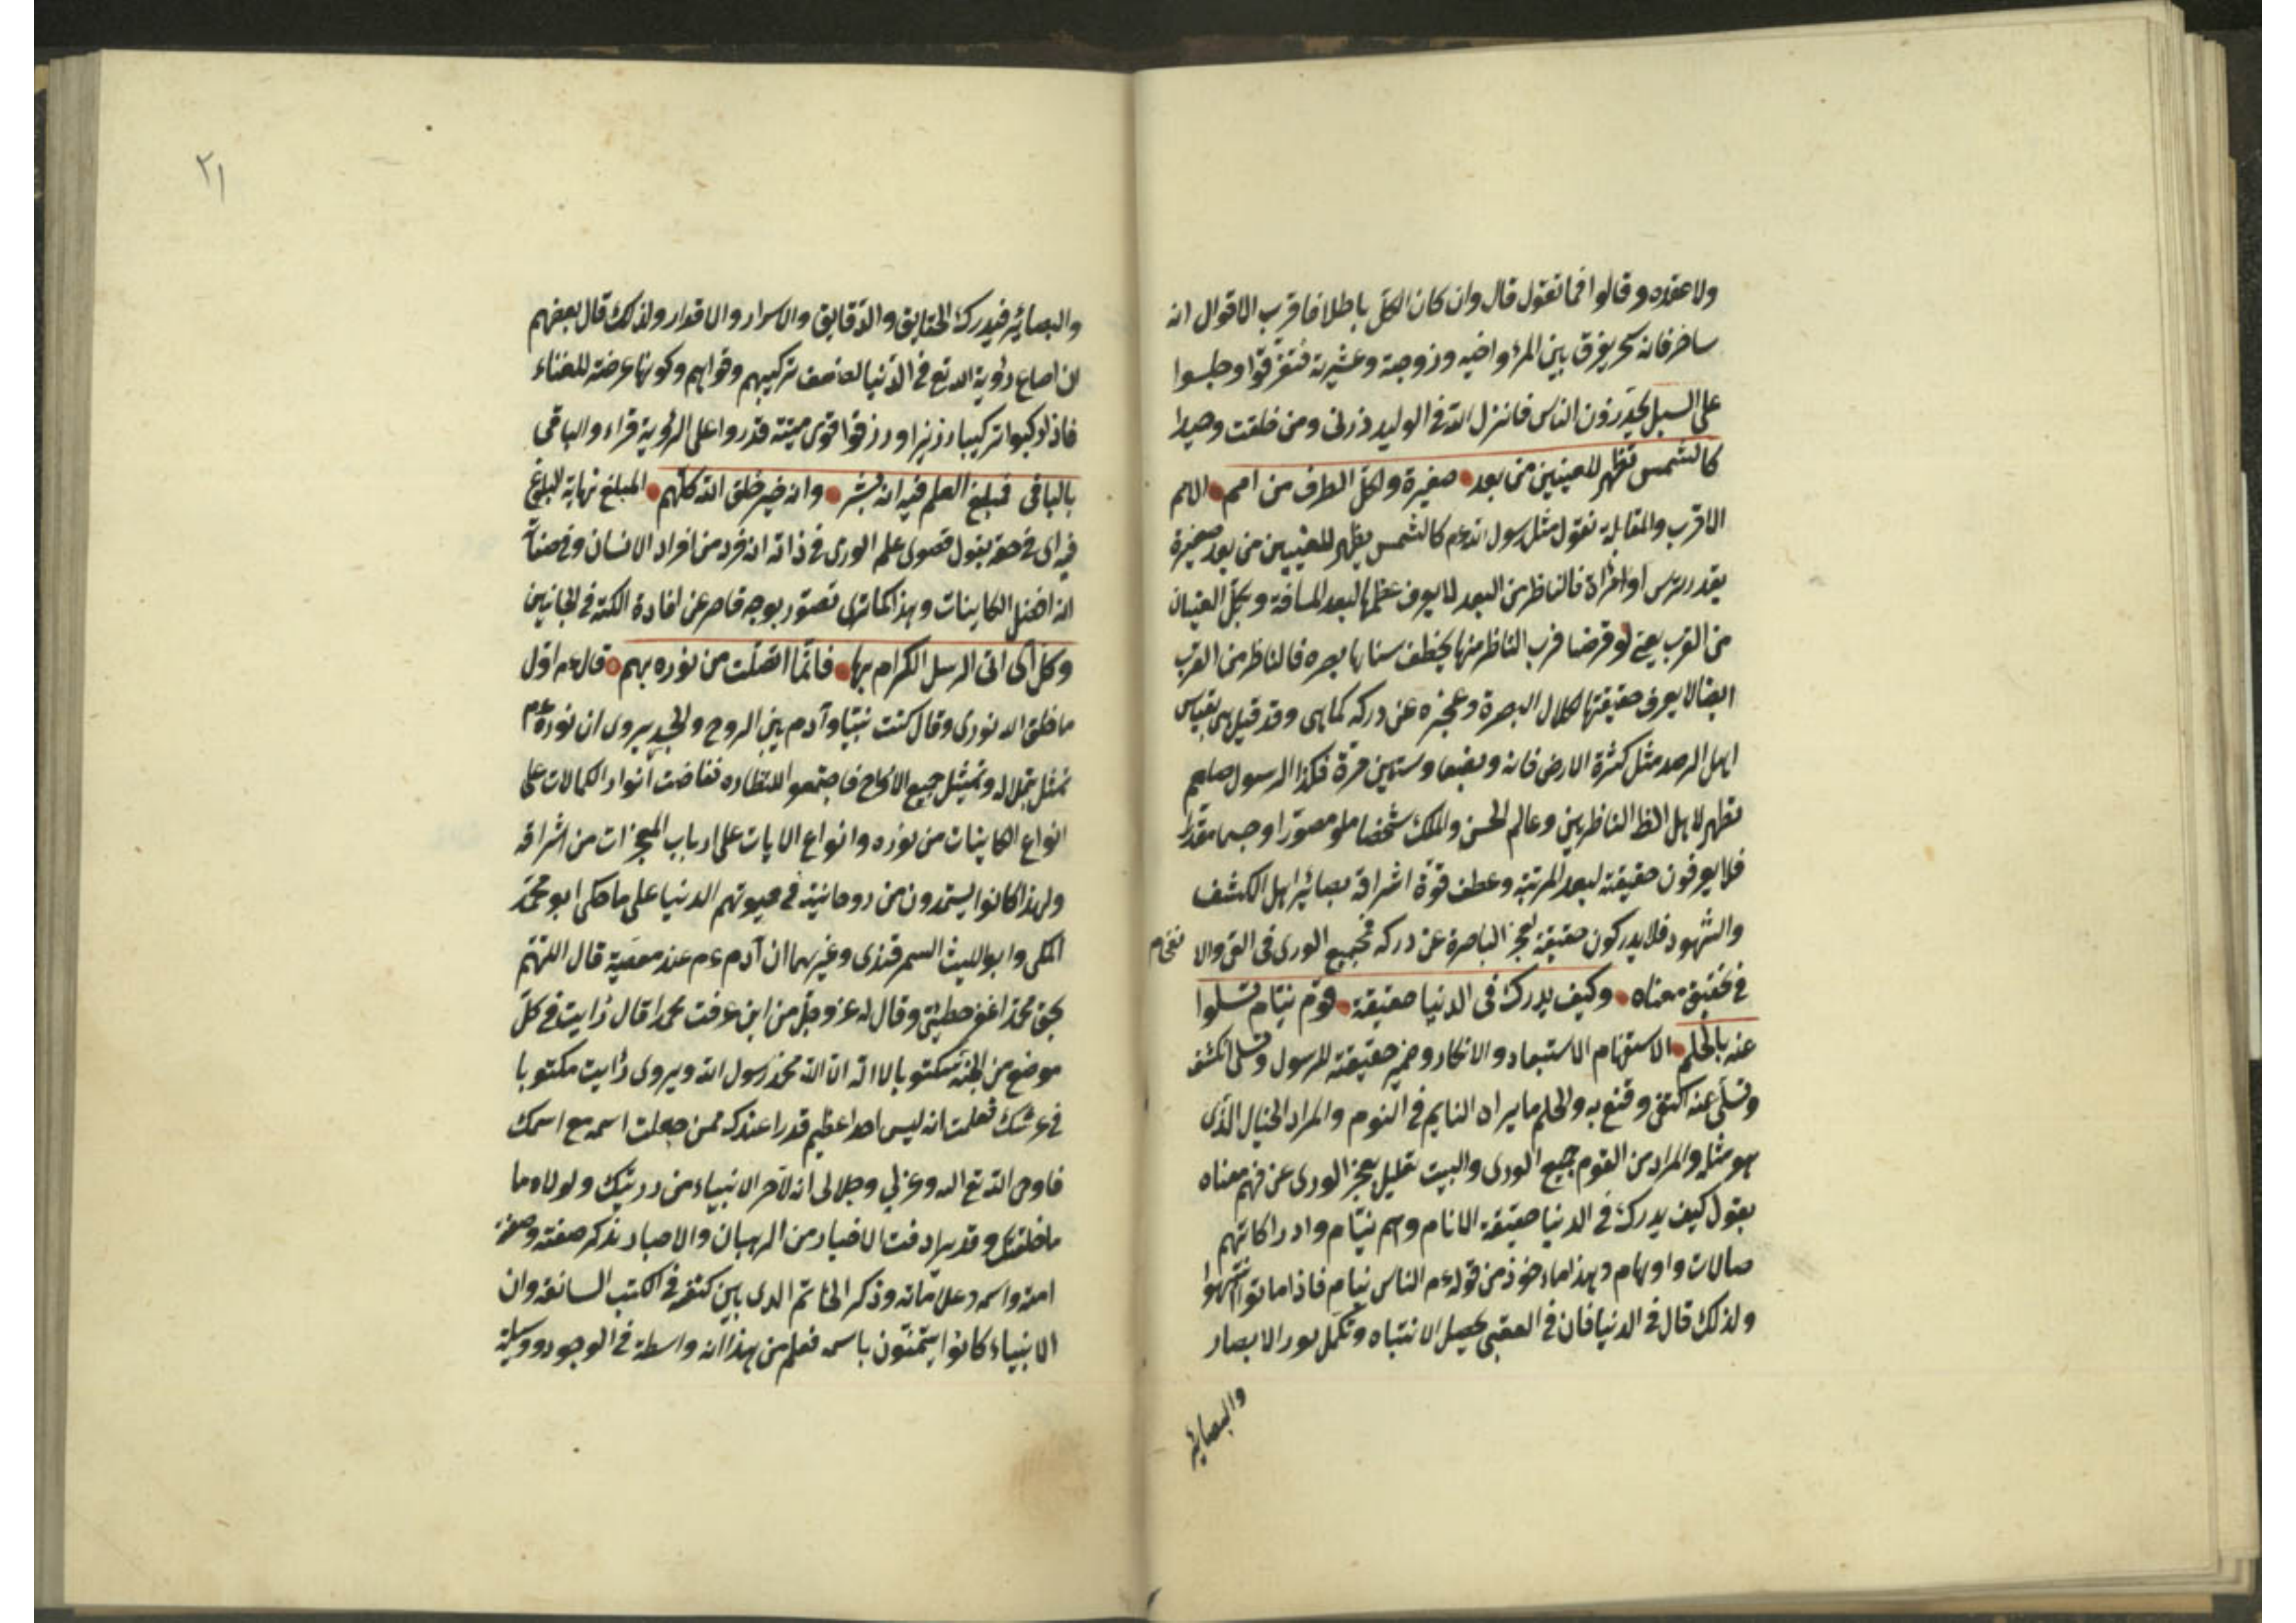 ولا عقده وقالوا فما نقول قال وان كان الكل باطلا فاقرب الاقوال انه
ساخر فانه سحر يفرق بين المرء واخيه وزوجته وعشيرته فتفرقوا وجلسوا
على السبل يحذرون الناس فانزل الله في الوليد ذرني ومن خلقت وحيدا
كالشمس تظهر للعينين من بعد صغيرة وتكل الطرف من امم الامم
الاقرب والمقابلة نقول مثل رسول الله عم كالشمس يظهر للعينين من بعد صغيرة
بقدر ترس او مرآة فالناظر من البعد لا يعرف عظمها لبعد المسافة وتكل العينان
من القرب يعني لو فرضنا قرب الناظر منها يخطف سناها بصره فالناظر من القرب
ايضا لا يعرف حقيقتها لكلال البصرة وعجزه عن دركه كما هي وقد قيل هي بقياس
اهل الرصد مثل كثرة الارض فانه وبضعا وستين مرة فكذا الرسول صلعم
تظهر لاهل الظ الناظرين وعالم الحسن والملك شخصا مصورا وجسما مقدرا
فلا يعرفون حقيقته لبعد المرتبة وعطف قوة اشراقه بصائر اهل الكشف
والشهود فلا يدركون حقيقة لعجز الباصرة عن دركه فجميع الورى في القرى والا
في تحقيق معناه وكيف يدرك في الدنيا حقيقته قوم نيام تسلوا
عنه بالحلم الاستفهام الاستبعاد والانكار وضمير حقيقته للرسول وتسلى انكشف
وتسلى عنه اكتفى وقنع به والحلم ما يراه النايم في النوم والمراد الخيال الذي
هو مثله والمراد من القوم جميع الورى والبيت تعليل لعجز الورى عن فهم معناه
يقول كيف يدرك في الدنيا حقيقته الانام وهم نيام وادراكاتهم
حالات واوهام وهذا ماءخوذ من قوله عم الناس نيام فاذا ماتوا انتبهوا
ولذلك قال في الدنيا فان في العقبى يحصل الانتباه وتكمل نور الابصار
والبصائر
٢١
والبصائر فيدرك الحقايق والدقايق والاسرار والاقدار ولذلك قال بعضهم
رؤية الله تع في الدنيا لضعف تركيبهم وقواهم وكونها عرضة للفناء
فاذا ركبوا تركيبا رزينا ورزقوا قوى قدروا على الرؤية قراء والباقي
بالباقي فمبلغ العلم فيه انه بشر وانه خير خلق الله كلهم المبلغ نهاية البلوغ
فيه اى في حقه يقول قصوى علم الورى في ذاته انه فرد من افراد الانسان وفي صفاته
انه افضل الكاينات وهذا كما ترى تصور بوجه قاصر عن افادة الكنه في الجانبين
وكل آى اتى الرسل الكرام بها فانما اتصلت من نوره بهم قال عم اول
ما خلق الله نورى وقال كنت نبيا وآدم بين الروح والجسد يروى ان نوره عم
تمثل بجلاله وتمثيل جميع الارواح فاجتمعوا للنظاره ففاضت انوار الكمالات على
انواع الكاينات من نوره وانواع الايات على ارباب المعجزات من اشراقه
ولهذا كانوا يستمدون من روحانيته في حيوتهم الدنيا على ما حكى ابو محمد
المكى وابو الليث السمرقندى وغيرهما ان آدم عم عند معصيته قال اللهم
بحق محمد اغفر خطيئتي وقال له عز وجل من اين عرفت محمدا قال رايت في كل
موضع من الجنة مكتوبا لا اله الا الله محمد رسول الله ويروى رايت مكتوبا
في عرشك فعلمت انه ليس احد اعظم قدرا عندك ممن جعلت اسمه مع اسمك
فاوحى الله تع اليه وعزتي وجلالى انه لآخر الانبياء من ذريتك ولولاه ما
ما خلقتك وقد ترادفت الاخبار من الرهبان والاحبار بذكر صفته وصفة
امته واسمه وعلاماته وذكر الخاتم الذى بين كتفيه في الكتب السالفة وان
الانبياء كانوا يتمنون باسمه فعلم من هذا انه واسطة في الوجود ووسيلة